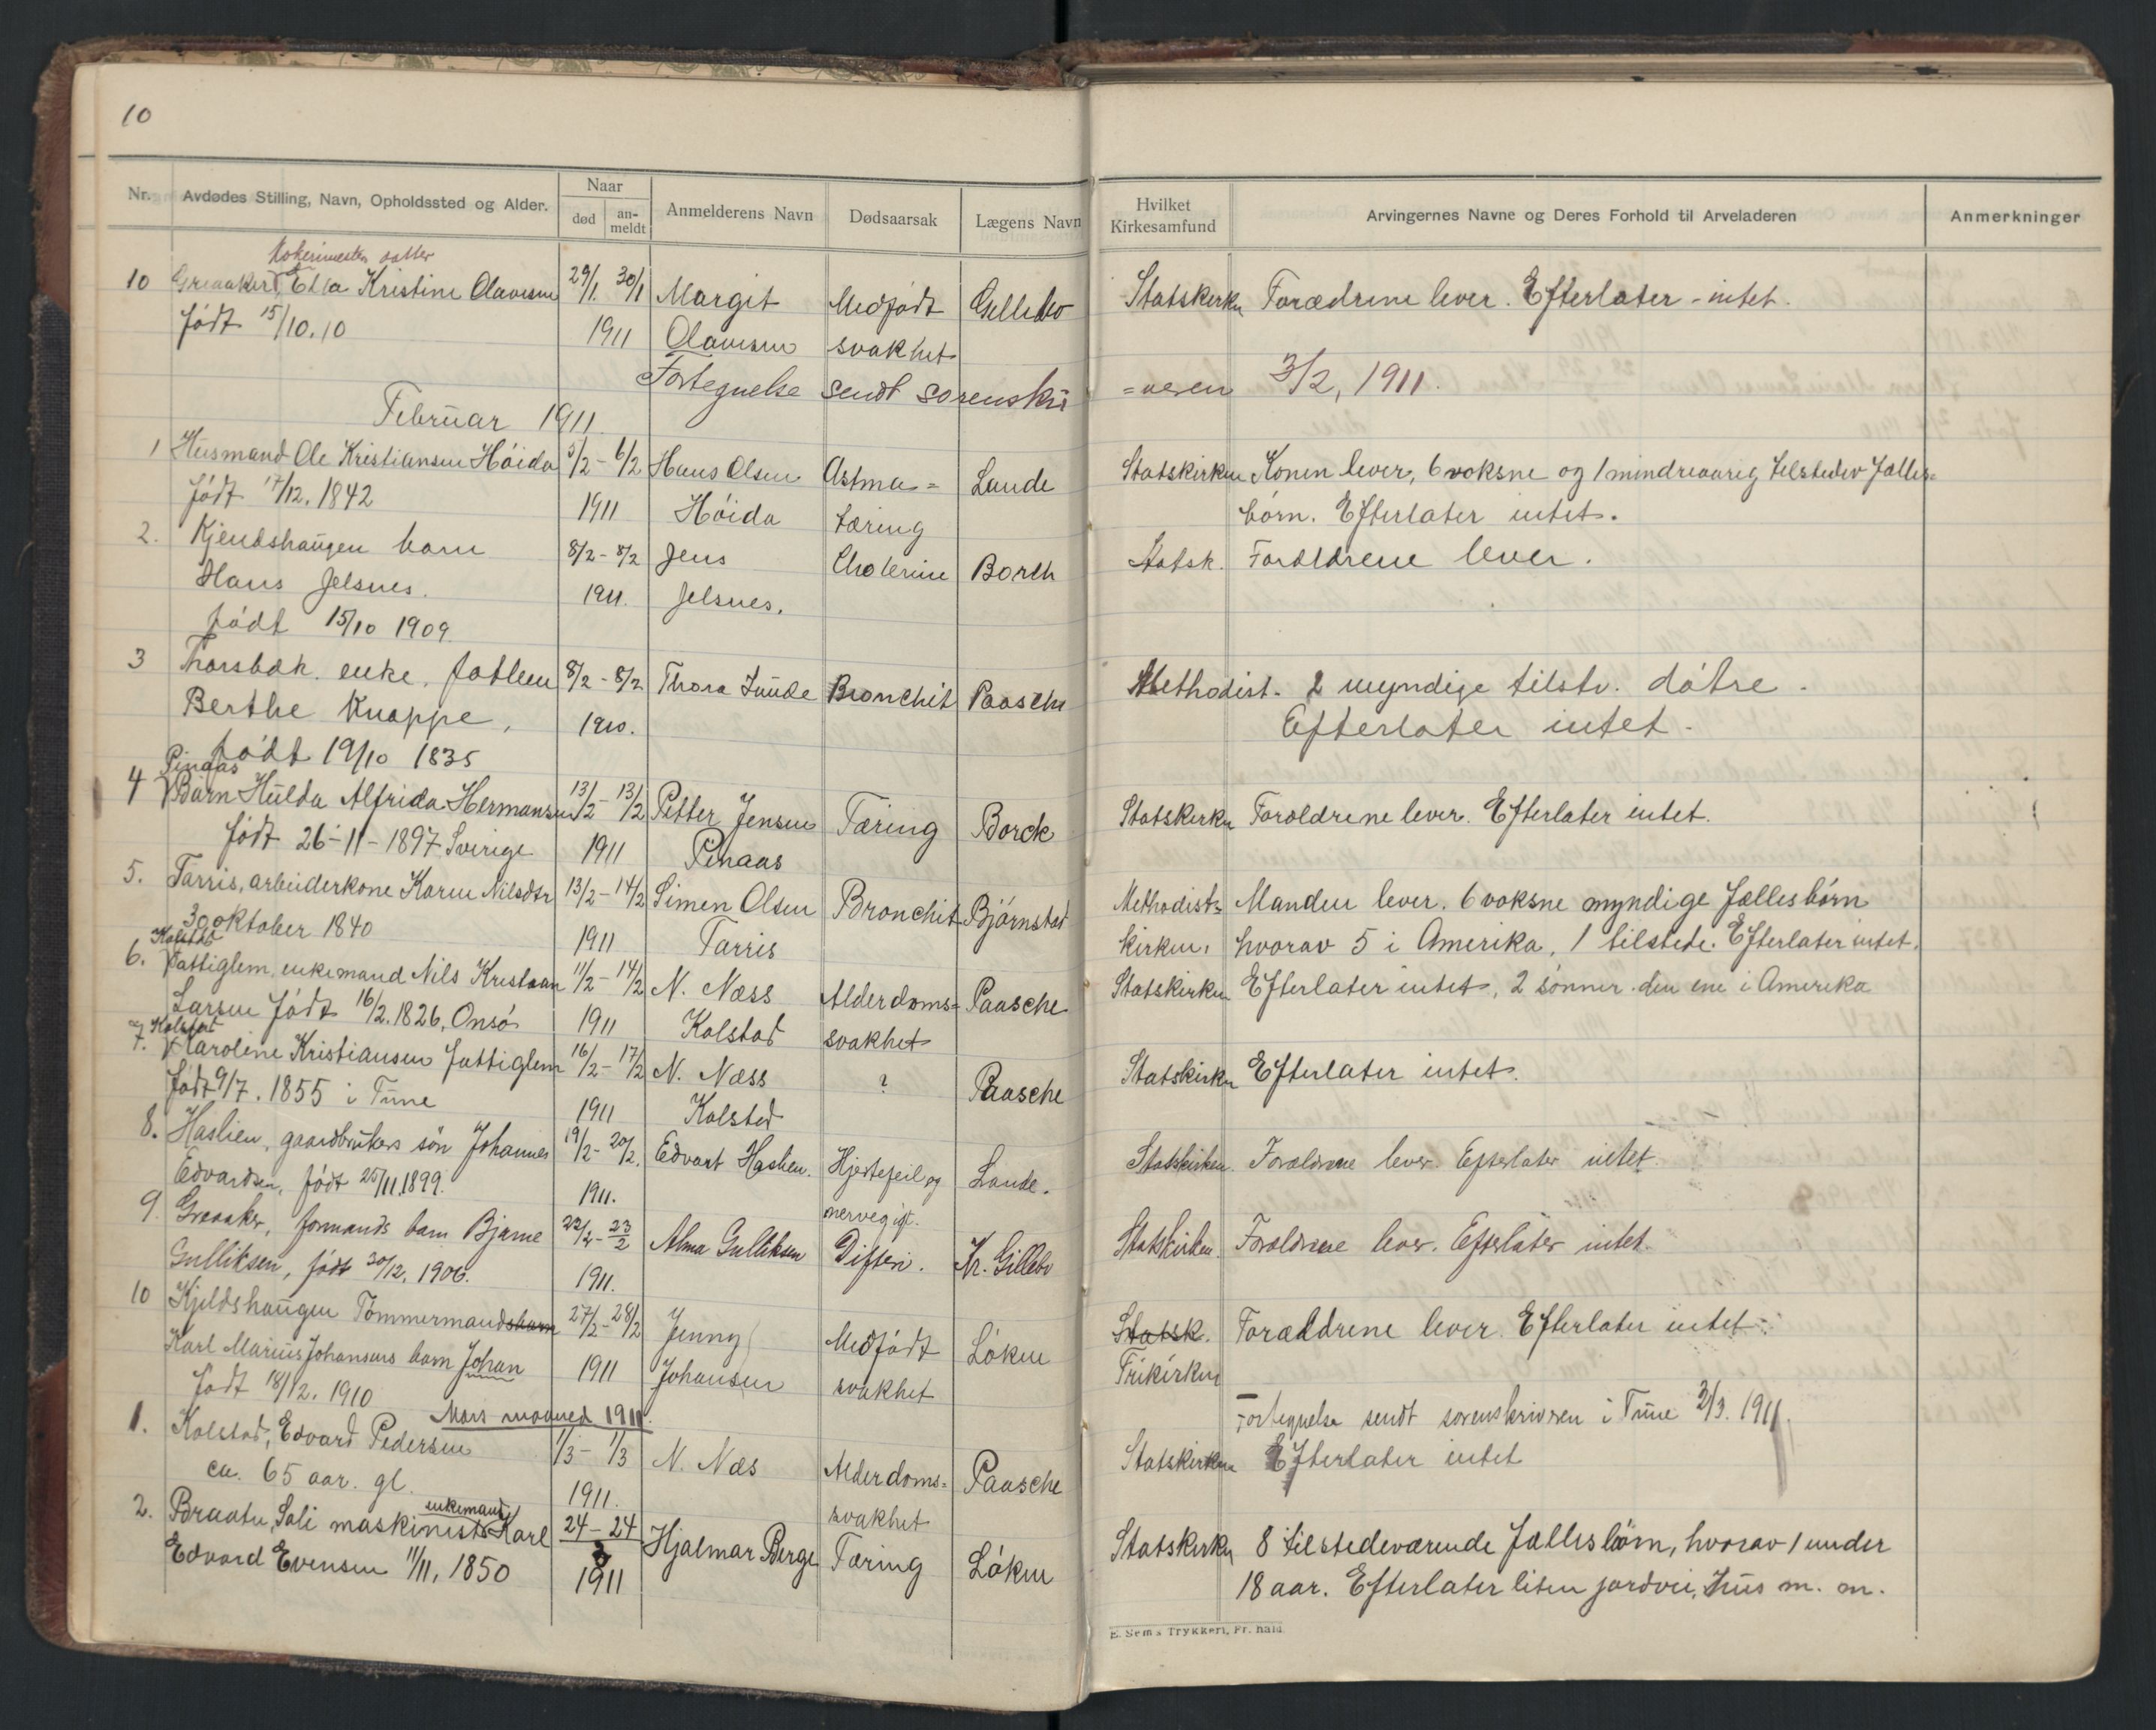 10
Nr. Avdødes Stilling, Navn, Opholdssted og Alder. Naar død an-meldt Anmelderens Navn Dødsaarsak Lægens Navn Hvilket Kirkesamfund Arvingernes Navne og Deres Forhold til Arveladeren Anmerkninger
datter
10 Greaaker, Ella Kristine Olavesen 29/1. 30/1 Margit Medfødt Gillebo Statskirken Forædrene lever. Efterlater - intet.
født 15/10.10 1911 Olavesen svakhet
Fortegnelse sendt sorenskri=veren 3/2, 1911.
Februar 1911.
1 Husmand Ole Kristiansen Høida 5/2 - 6/2 Hans Olsen Astma= Lande Statskirken Konen lever, 6 voksne og 1 mindreaarig tilstedev fælles=
født 17/12. 1842 1911 Høida tæring børn. Efterlater intet.
2. Kjendshaugen barn 8/2 - 8/2 Jens Cholerine Borch Statsk. Forældrene lever.
Hans Jelsnes. 1911. Jelsnes.
født 15/10 1909.
3 Thorsbæk. enke, fattlem 8/2 - 8/2 Thora Lunde Bronchit Paasche Methodist. 2 myndige tilstv. døtre.
Berthe Knappe, 1910. Efterlater intet.
født 19/10 1835
Pinaas
4 Barn Hulda Alfrida Hermansen 13/2 - 13/2 Petter Jensen Tæring Borck Statskirken Foroldrene lever. Efterlater intet.
født 26-11-1897 Sverige 1911 Pinaas
5. Tarris, arbeiderkone Karen Nilsdtr 13/2 - 14/2 Simen Olsen Bronchit Bjørnstad Methodist= Manden lever. 6 voksne myndige fællesbørn
30 oktober 1840 1911 Tarris kirken. hvorav 5 i Amerika, 1 tilstede. Efterlater intet.
Kolstad
6. Fattiglem, enkemand Nils Kristian 11/2 - 14/2 N. Næss Alderdoms= Paasche Statskirken Efterlater intet, 2 sønner. den ene i Amerika
Larsen født 16/2. 1826, Onsø 1911 Kolstad svakhet
Kolstad
7. Karoline Kristiansen fattiglem 16/2 - 17/2 N. Næss ? Paasche Statskirken Efterlater intet.
født 9/7. 1855 i Tune 1911 Kolstad
8. Haslien, gaardbrukers søn Johannes 19/2 - 20/2. Edvart Haslien. Hjertefeil og Lande. Statskirken. Forældrene lever. Efterlater intet.
Edvardsen, født 25/11.1899. 1911. nervegigt.
9. Greaaker, formands barn Bjarne 22/2 - 23/2 Alma Gulliksen Difteri. Kr. Gillebo Statskirken. Forældrene lever. Efterlater intet.
Gulliksen, født 30/12. 1906. 1911.
10 Kjeldshaugen Tømmermandsbarn 27/2 - 28/2 Jenny Medfødt Løken Statsk. Forældrene lever. Efterlater intet.
Karl Marius Johansens barn Johan 1911 Johansen svakhet Frikirken
født 18/12. 1910
Fortegnelse sendt sorenskriveren i Tune 2/3. 1911.
Mars maaned 1911.
1. Kolstad, Edvard Pedersen 1/3 - 1/3 N. Næs Alderdoms= Paasche Statskirken Efterlater intet
ca. 65 aar. gl. 1911. svakhet
enkemand
2. Braaten, Sali maskinist Karl 24 - 24 Hjalmar Berge Tæring Løken Statskirken 8 tilstedeværende fællesbørn, hvorav 1 under
Edvard Evensen 11/11, 1850 3 1911 18 aar. Efterlater liten jordvei, hus m. m.
E. Sem's Trykkeri, Fr.hald